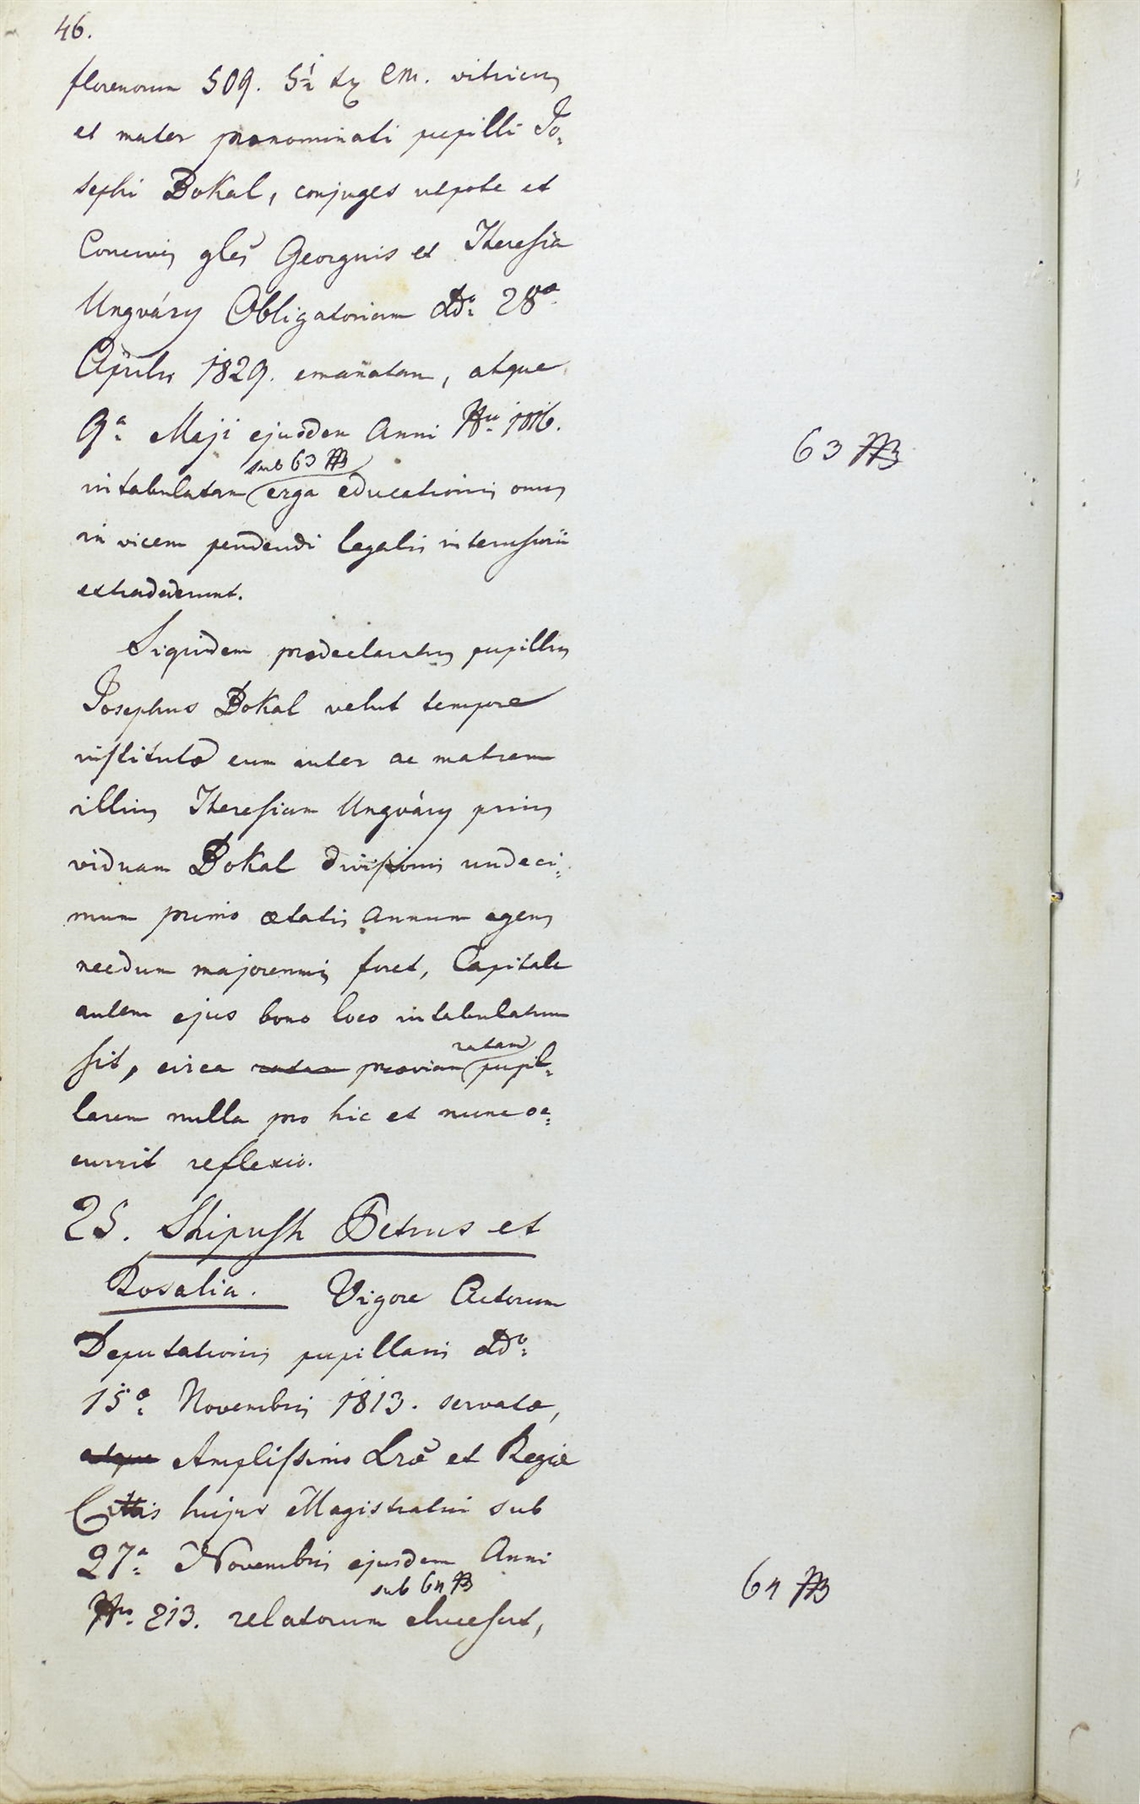 46.
florenorum 509. 5½ xr CM. vitricus
et mater prænominati pupilli Jo=
sephi Bokal, conjuges utpote et
Concives glės Georgius et Theresia
Ungváry Obligatoriam ddo 28a
Aprilis 1829. emanatam, atque
9a Maji ejusdem Anni Nro 1016.
sub 63
63
intabulatam erga educationis onus
in vicem pendendi legalis interusurii
extradederunt.
Siquidem prædeclaratus pupillus
Josephus Bokal velut tempore
institutæ eum inter ac matrem
illius Theresiam Ungváry prius
viduam Bokal divisionis undeci=
mum primo ætatis annum agens
necdum majorennis foret, Capitale
autem ejus bono loco intabulatum
ratam
sit, circa ratam præviam pupil=
larem nulla pro hic et nunc oc=
currit reflexio.
25. Shipush Petrus et
Rosalia. Vigore Actorum
Deputationis pupillaris ddo
15a Novembris 1813. servatæ,
atque Amplissimo Lræ et Regiæ
Cittis hujus Magistratui sub
27a Novembris ejusdem Anni
sub 64
64
Nro 213. relatorum elucesceret,